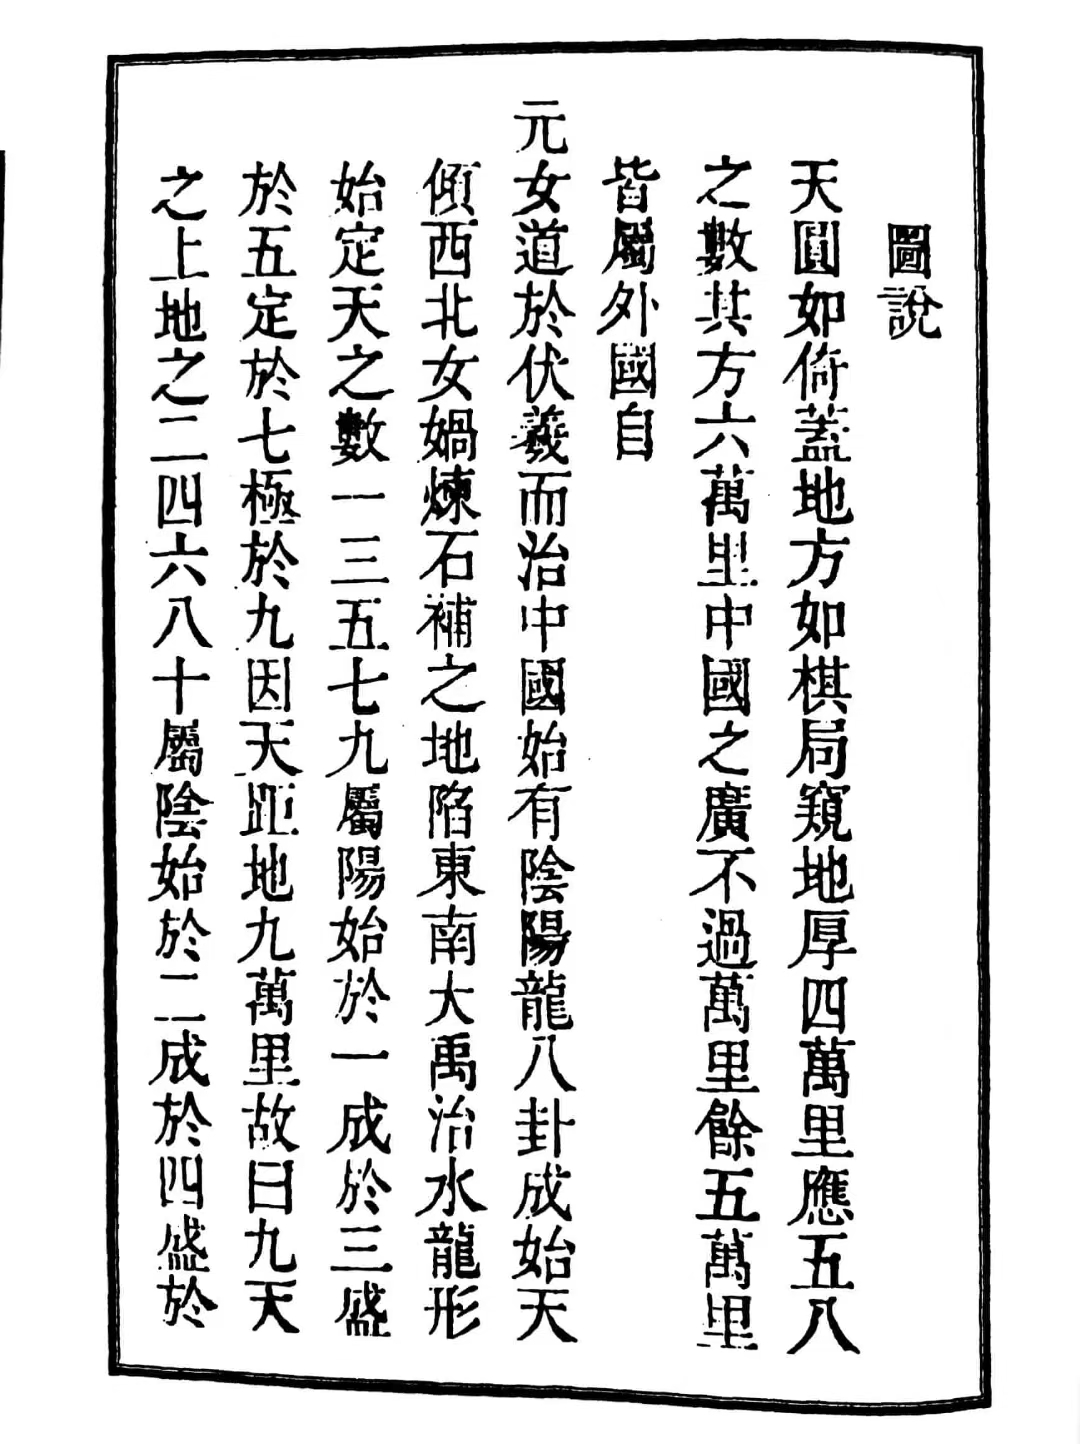 圖說
天圓如倚蓋地方如棋局窺地厚四萬里應五八
之數其方六萬里中國之廣不過萬里餘五萬里
皆屬外國自
元女道於伏羲而治中國始有陰陽龍八卦成始天
傾西北女媧煉石補之地陷東南大禹治水龍形
始定天之數一三五七九屬陽始於一成於三盛
於五定於七極於九因天距地九萬里故曰九天
之上地之二四六八十屬陰始於二成於四盛於